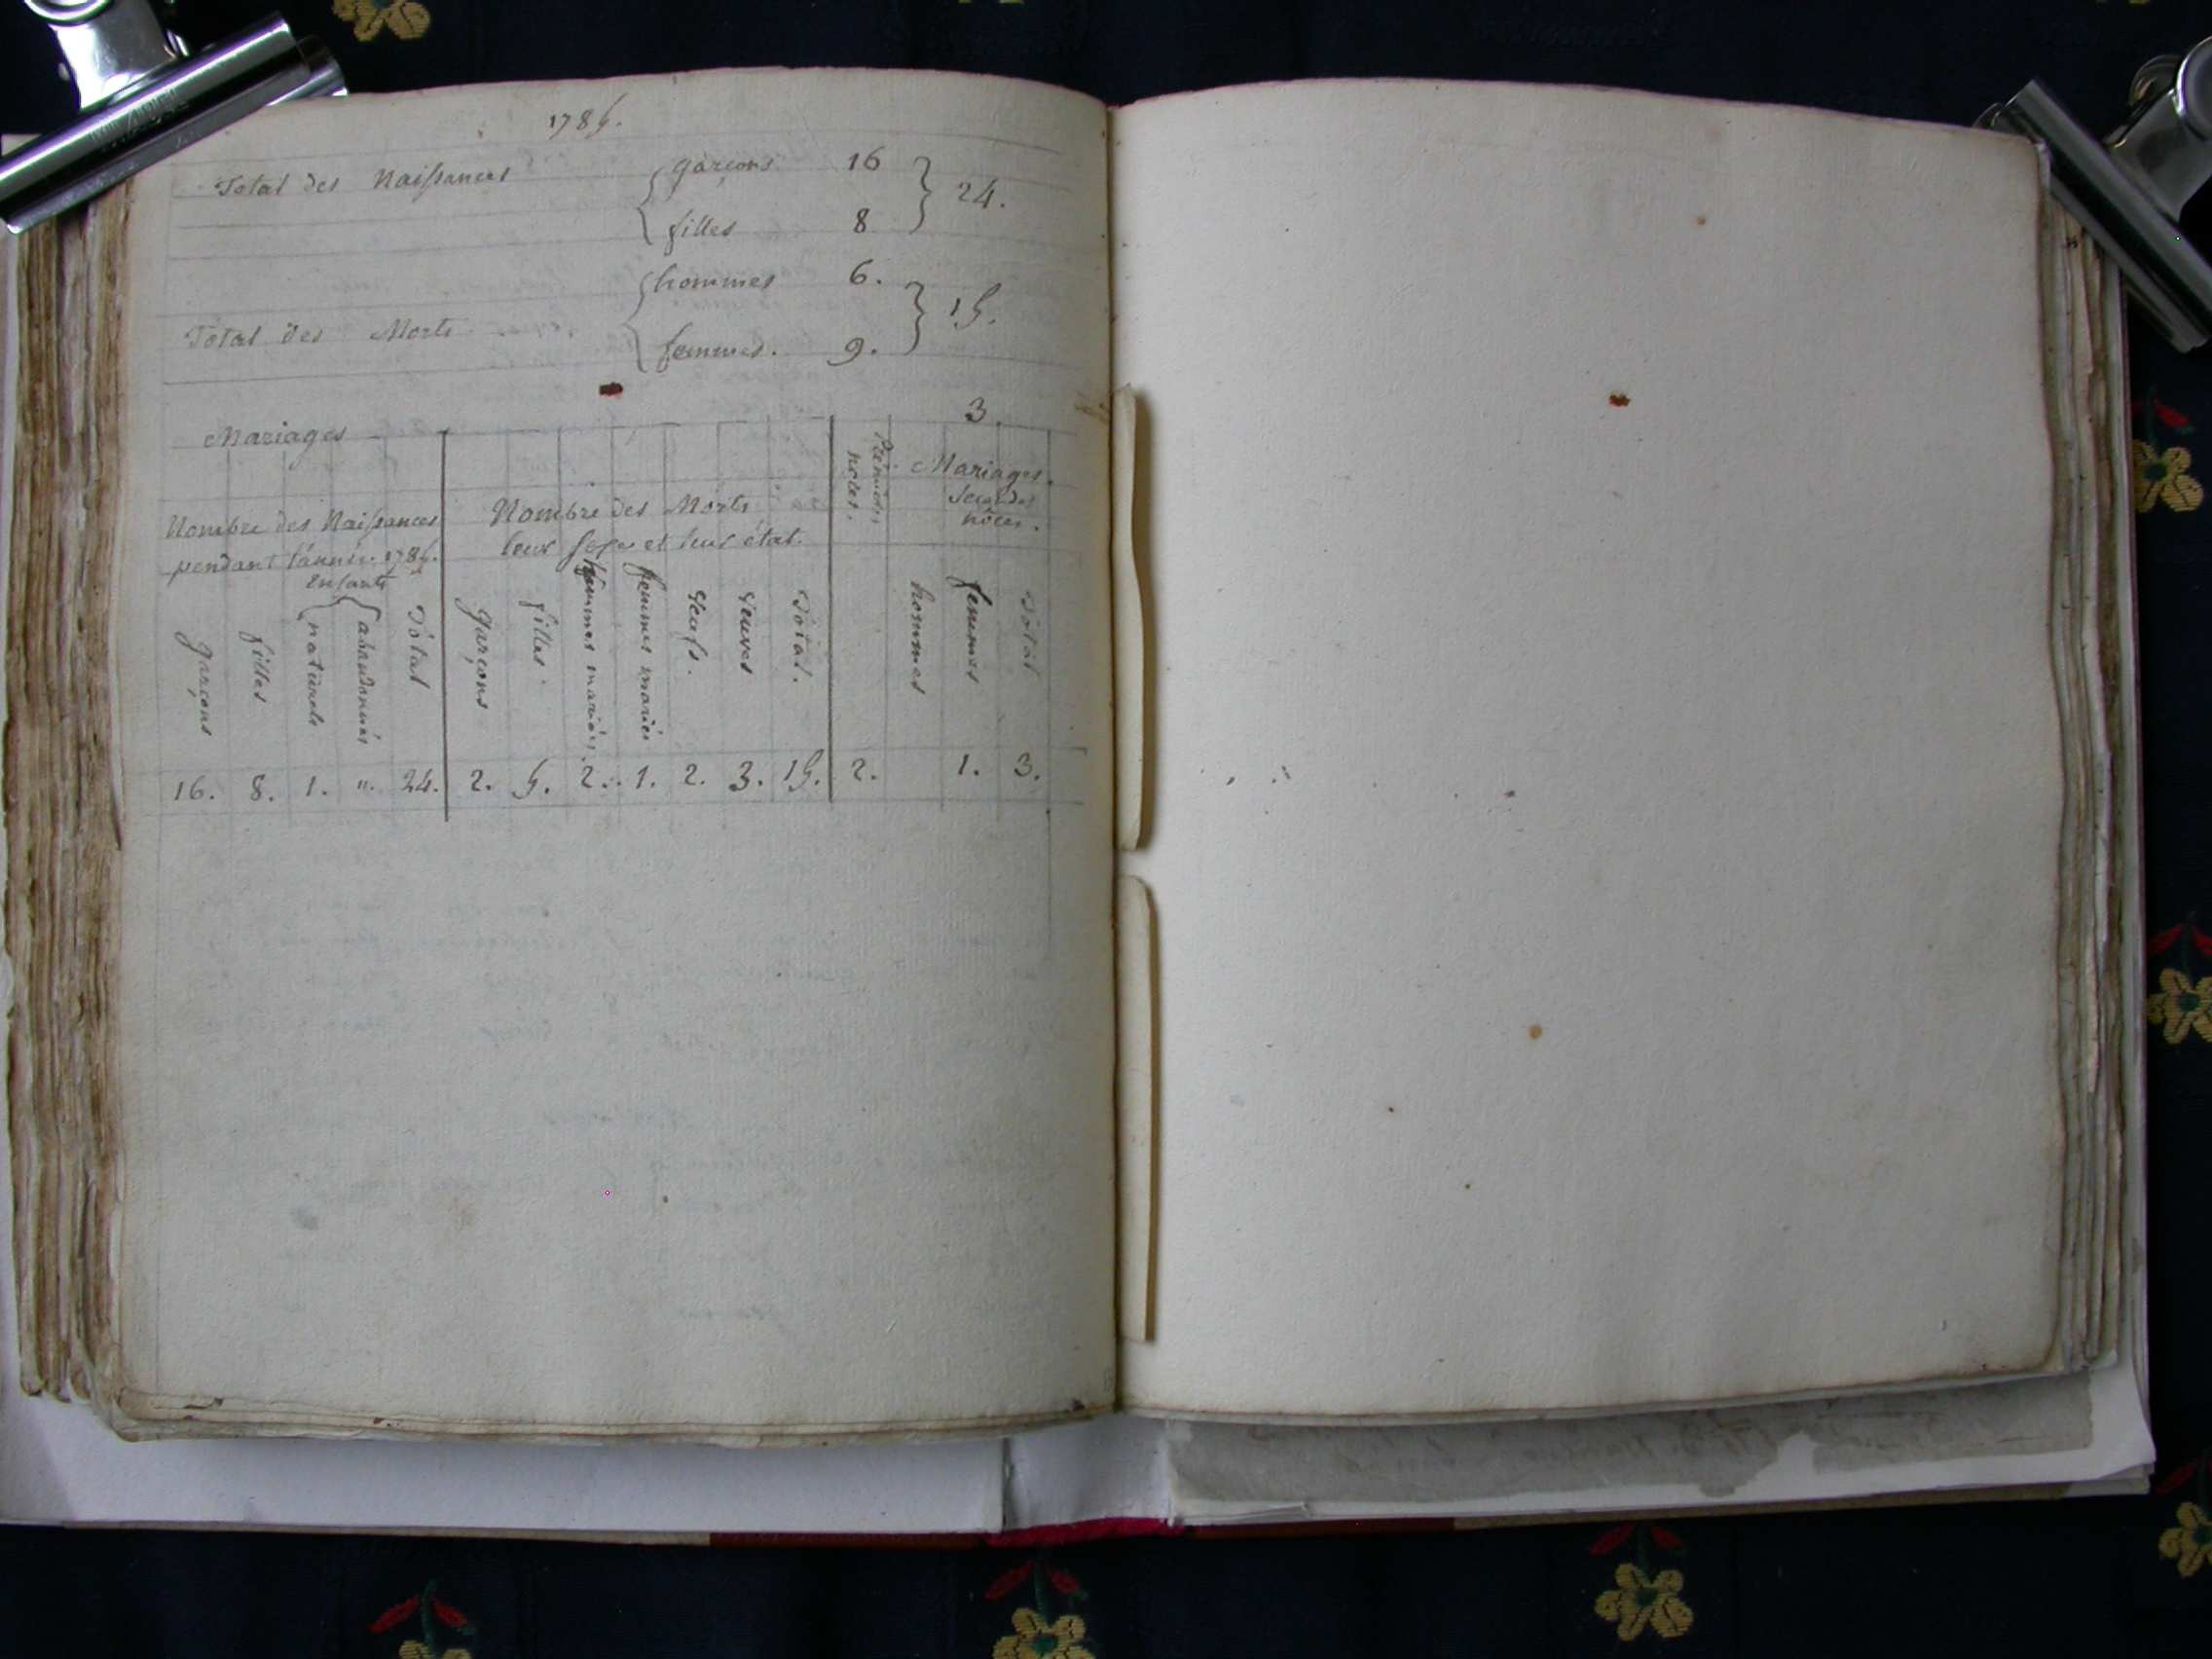 1785.
Total des Naissances { garçons 16 } 24.
filles 8
Total des Morts { hommes 6. } 15.
femmes. 9.
Mariages 3.
Nombre des Naissances
pendant l'année 1785.
Enfants
garçons
filles
naturels
abandonnés
Total
Nombre des Morts
leur sexe et leur état.
garçons
filles.
hommes mariés
femmes mariées
Veufs.
Veuves
Total.
Mariages.
Premières
noces.
Secondes
nôces.
hommes
femmes
Total
16. 8. 1. ". 24. 2. 5. 2. 1. 2. 3. 15. 2. 1. 3.